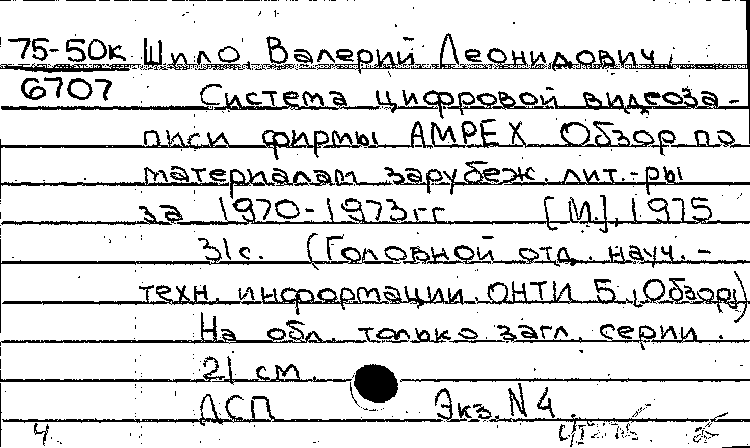 75-50к Шило, Валерий Леонидович.
6707 Система цифровой видеоза-
писи фирмы AMPEX Обзор по
материалам зарубеж. лит.-ры
за 1970-1973гг [М.], 1975
31с. (Головной отд. науч.-
техн. информации. ОНТИ 5. (Обзоры)
На обл. только загл. серии.
21 см.
ДСП Экз. N4.
4